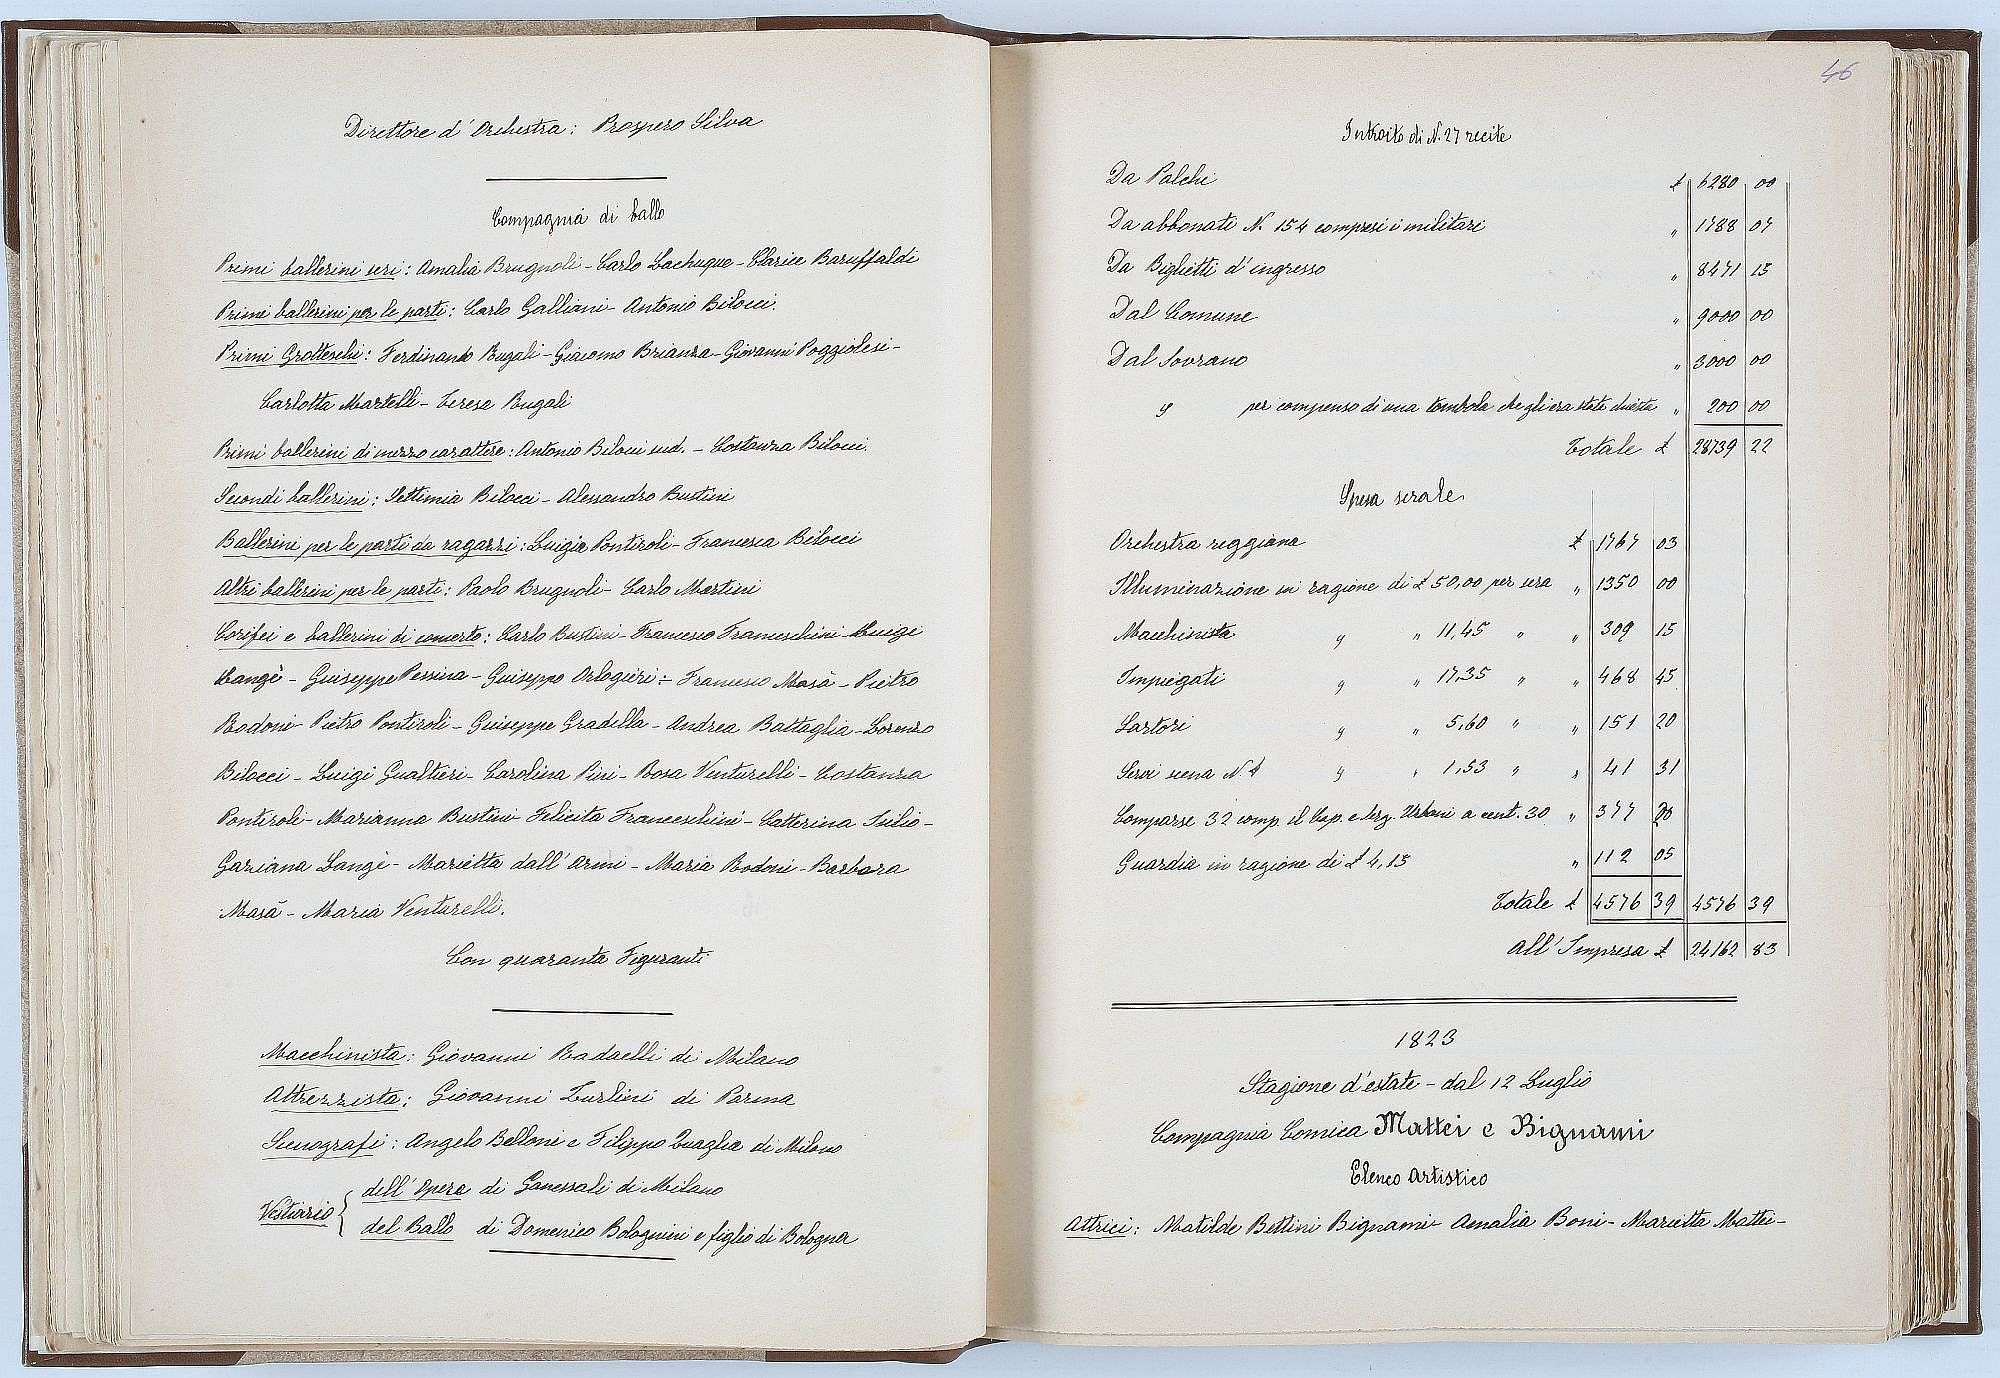 Direttore d'Orchestra: Prospero Silva
Compagnia di ballo
Primi ballerini seri: Amalia Brugnoli - Carlo Lachuque - Clarice Baruffaldi
Primi ballerini per le parti: Carlo Galliani - Antonio Bilocci.
Primi Grotteschi: Ferdinando Rugali - Giacomo Brianza - Giovanni Poggiolesi -
Carlotta Martelli - Teresa Rugali
Primi ballerini di mezzo carattere: Antonio Bilocci sud. - Costanza Bilocci.
Secondi ballerini: Settimia Bilocci - Alessandro Bustini
Ballerini per le parti da ragazzi: Luigia Pontiroli - Francesca Bilocci
Altri ballerini per le parti: Paolo Brugnoli - Carlo Martini
Corifei e ballerini di concerto: Carlo Bustini - Francesco Franceschini - Luigi
Langè - Guiseppe Persina - Guiseppo Orlogieri - Francesco Masà - Pietro
Rodoni - Pietro Pontiroli - Guiseppe Gradella - Andrea Battaglia - Lorenzo
Bilocci - Luigi Gualtieri - Carolina Pini - Rosa Venturelli - Costanza
Pontiroli - Marianna Bustini - Felicita Franceschini - Catterina
Gaziana Langè - Marietta dall'Armi - Maria Rodoni - Barbara
Masà - Maria Venturelli.
Con quaranta Figuranti
Macchinista: Giovanni Radaelli di Milano
Attrezzista: Giovanni Zurlini di Parma
Scenografi: Angelo Belloni e Filippo Quaglia di Milano
Vestiario { dell'Opera di Ganessali di Milano
del Ballo di Domenico Bolognini e figlio di Bologna
46
Introito di N. 27 recite
Da Palchi £ 6280 00
Da abbonati N. 154 compresi i militari " 1788 07
Da Biglietti d'ingresso " 8471 15
Dal Comune " 9000 00
Dal Sovrano " 3000 00
" per compenso di una tombola che gli era stata " 200 00
Totale £ 28739 22
Spesa serale
Orchestra reggiana £ 1767 03
Illuminazione in ragione di £ 50,00 per sera " 1350 00
Macchinista " " 11,45 " " 309 15
Impiegati " " 17,35 " " 468 45
Sartori " " 5,60 " " 151 20
Servi scena N. 4 " " 1,53 " " 41 31
Comparse 32 comp. il Cap. e Urbani a cent. 30 " 377 20
Guardia in ragione di £ 4,15 " 112 05
Totale £ 4576 39 4576 39
All'Impresa £ 24162 83
1823
Stagione d'estate - dal 12 Luglio
Compagnia Comica Mattei e Bignami
Elenco Artistico
Attrici: Matilde Bettini Bignami - Amalia Boni - Marietta Mattei -